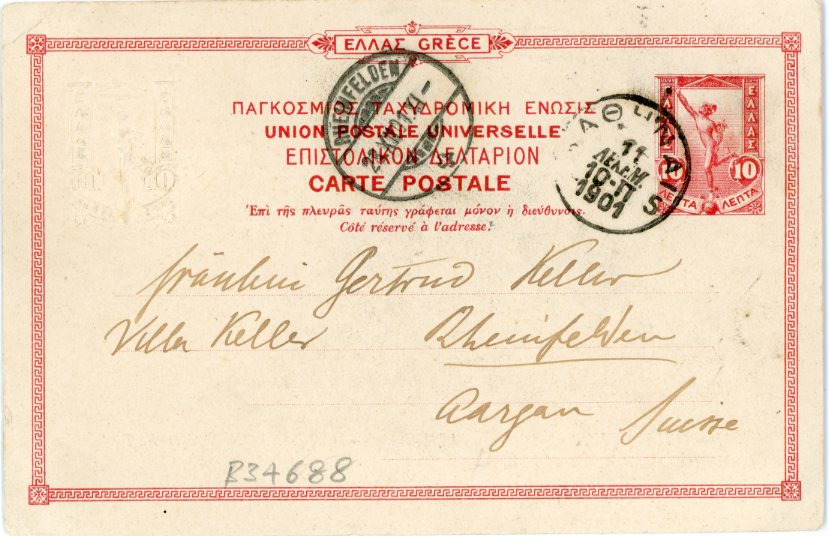 ΕΛΛΑΣ GRÈCE
ΠΑΓΚΟΣΜΙΟΣ ΤΑΧΥΔΡΟΜΙΚΗ ΕΝΩΣΙΣ
UNION POSTALE UNIVERSELLE
ΕΠΙΣΤΟΛΙΚΟΝ ΔΕΛΤΑΡΙΟΝ
CARTE POSTALE
Ἐπὶ τῆς πλευρᾶς ταύτης γράφεται μόνον ἡ διεύθυνσις.
Côté réservé à l'adresse.
RHEINFELDEN
ΑΘΗΝΑΙ
11
ΔΕΚΕΜ.
10-Π
1901
5
ΕΛΛΑΣ
10 10
ΛΕΠΤΑ ΛΕΠΤΑ
Fräulein Gertrud Keller
Villa Keller Rheinfelden
Aargau Suisse
B34688